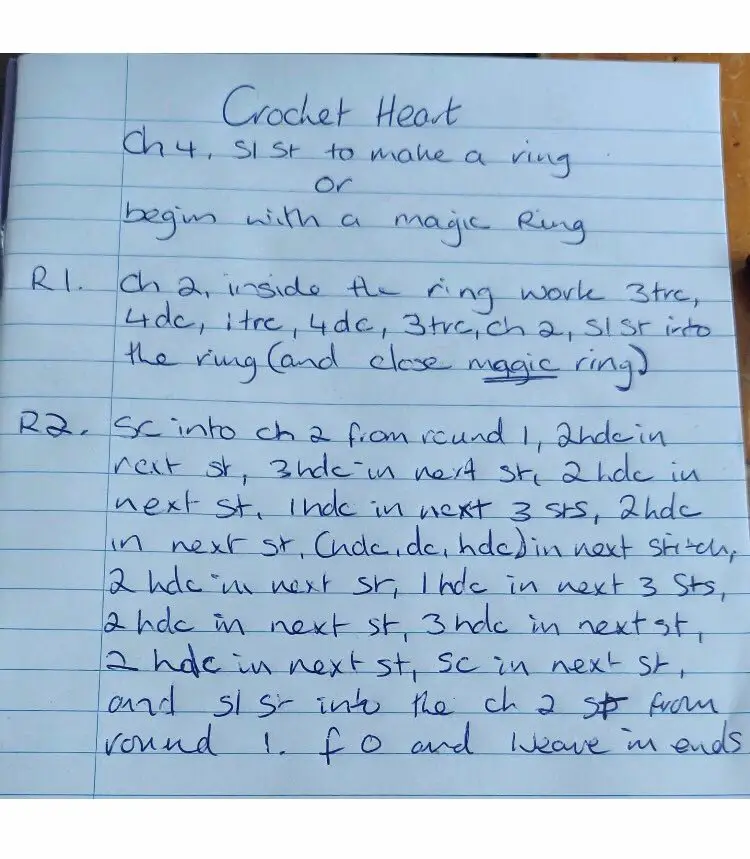 Crochet Heart
Ch 4, sl st to make a ring
or
begin with a magic Ring
R1. Ch 2, inside the ring work 3trc,
4dc, 1trc, 4dc, 3trc, ch 2, sl st into
the ring (and close magic ring)
R2. Sc into ch 2 from round 1, 2hdc in
next st, 3hdc in next st, 2 hdc in
next st, 1hdc in next 3 sts, 2hdc
in next st, (hdc, dc, hdc) in next stitch,
2 hdc in next st, 1 hdc in next 3 Sts,
2 hdc in next st, 3 hdc in next st,
2 hdc in next st, sc in next st,
and sl st into the ch 2 st from
round 1. f o and weave in ends